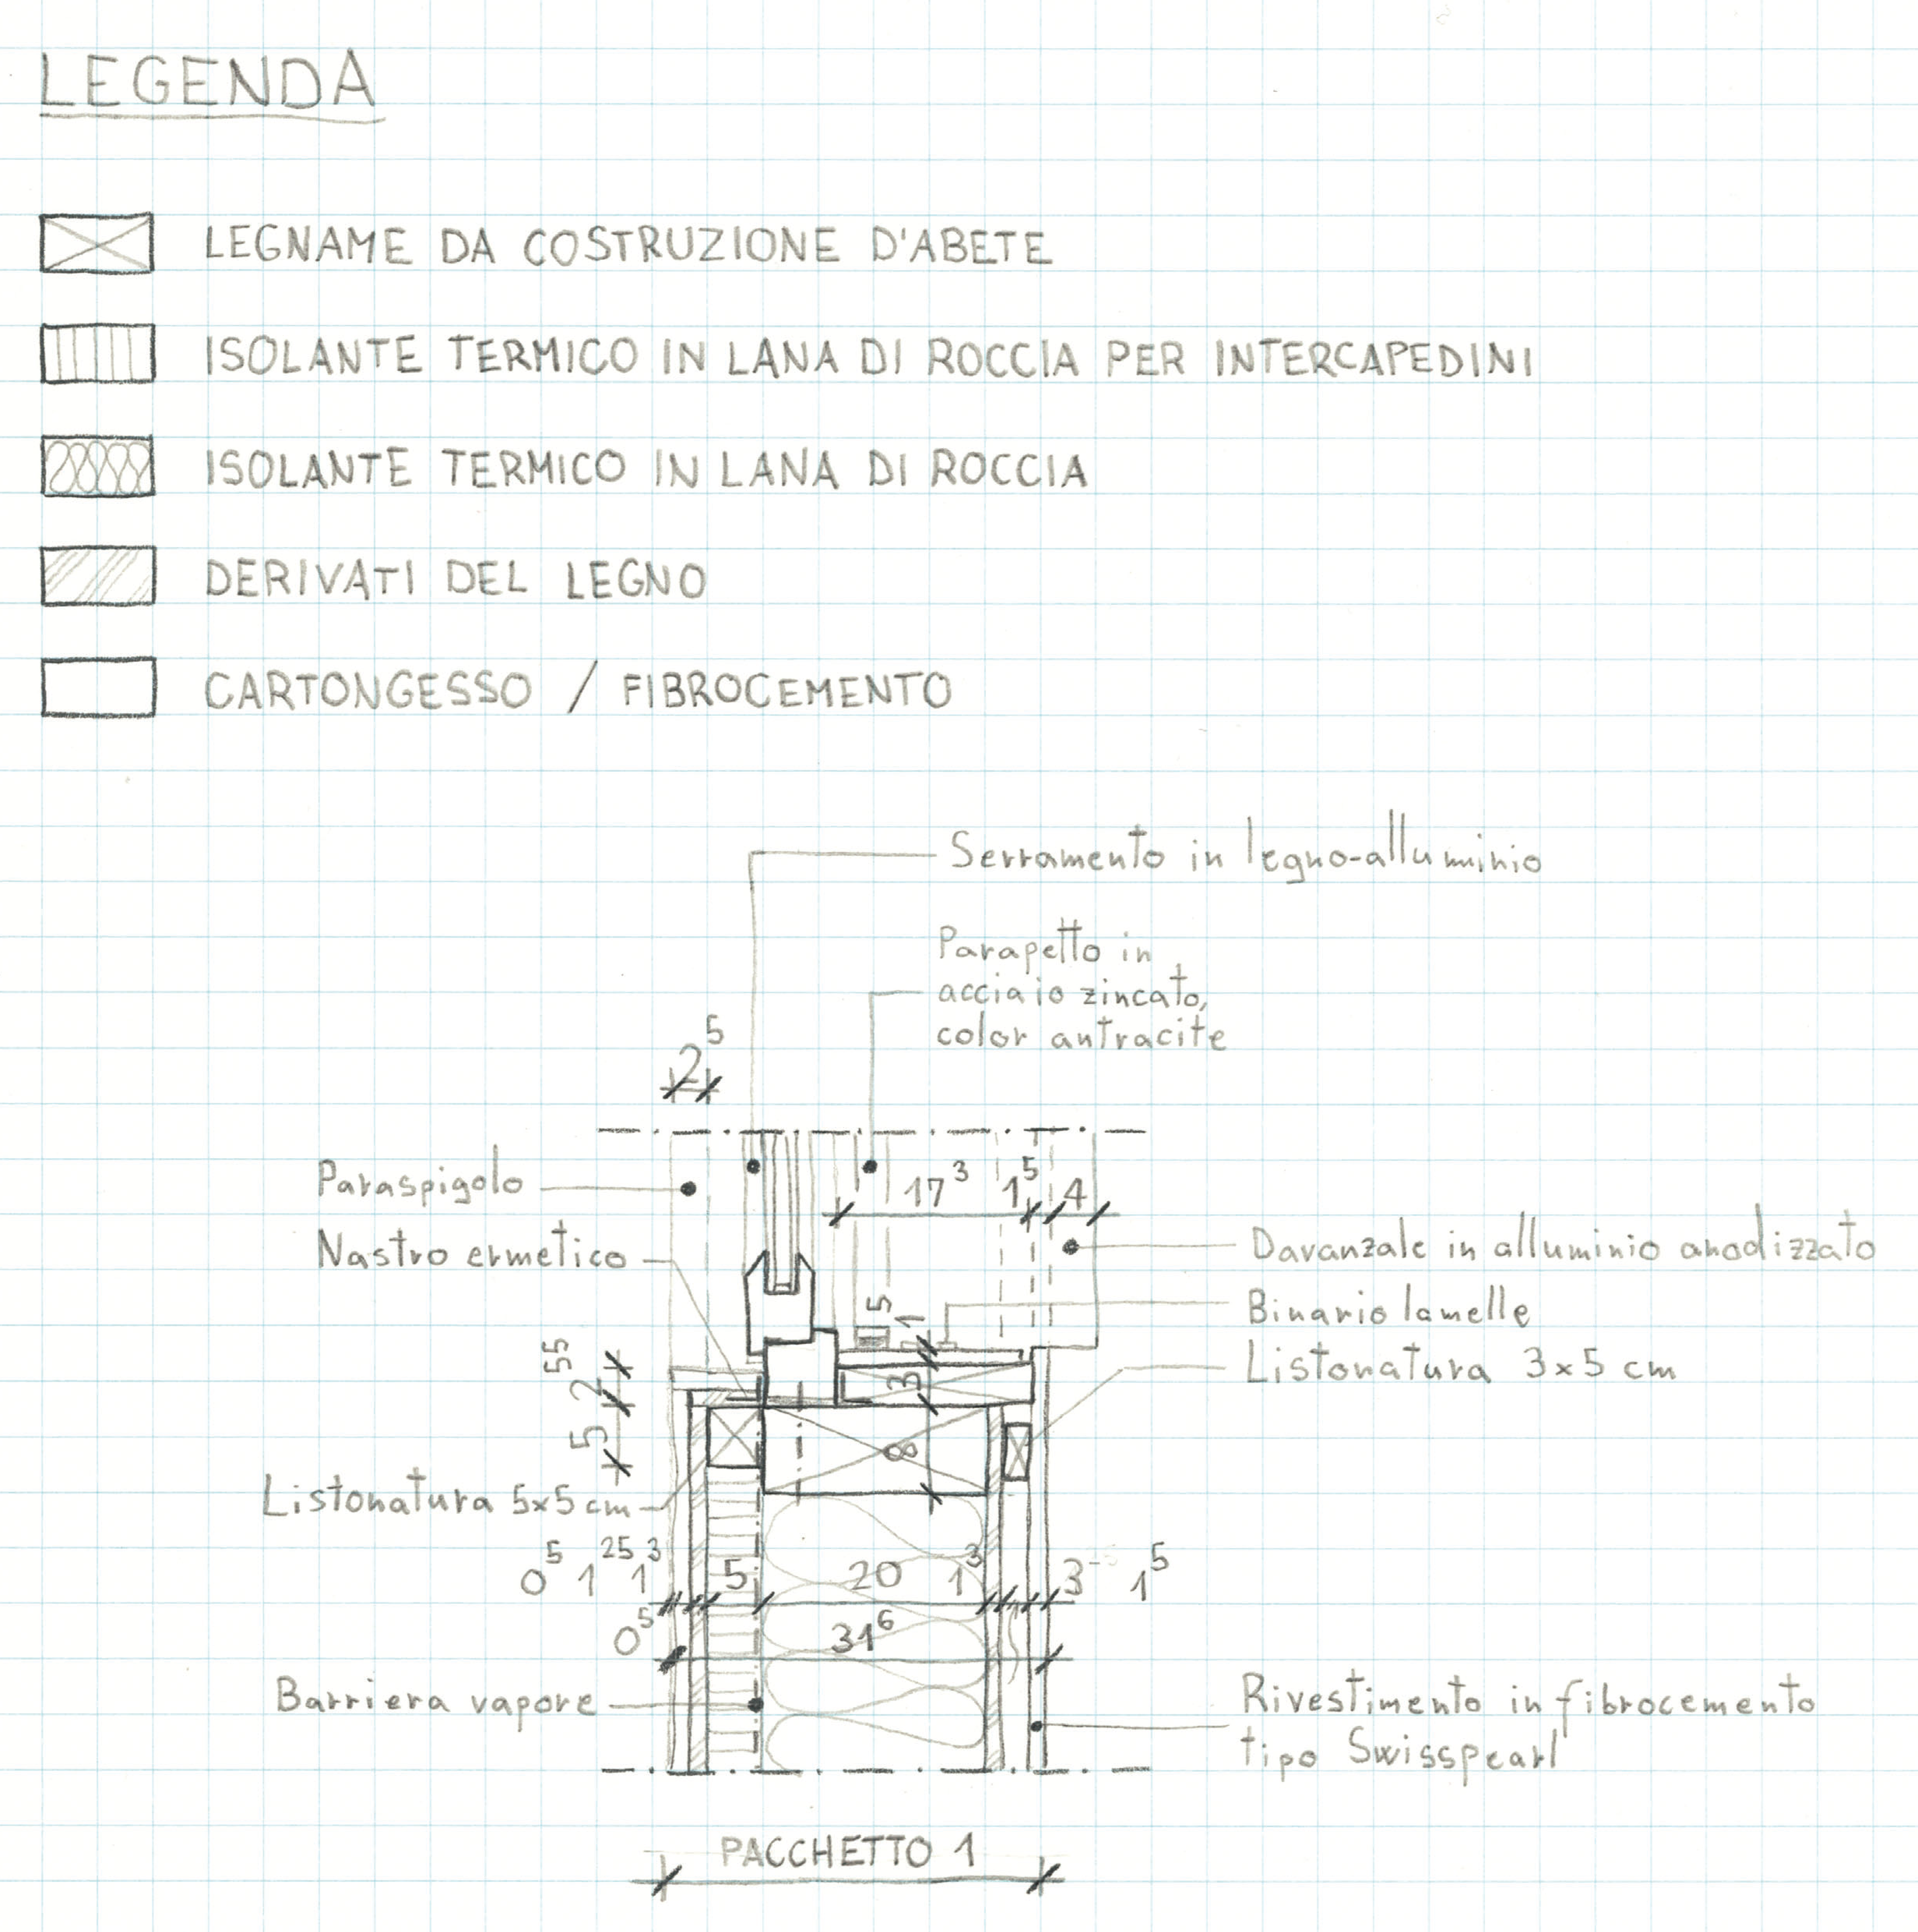 LEGENDA
LEGNAME DA COSTRUZIONE D'ABETE
ISOLANTE TERMICO IN LANA DI ROCCIA PER INTERCAPEDINI
ISOLANTE TERMICO IN LANA DI ROCCIA
DERIVATI DEL LEGNO
CARTONGESSO / FIBROCEMENTO
Serramento in legno-alluminio
Parapetto in
acciaio zincato,
color antracite
2⁵
Paraspigolo
17³ 1⁵ 4
Nastro ermetico
Davanzale in alluminio anodizzato
5 1
Binario lamelle
55
Listonatura 3x5 cm
2 3
5 8
Listonatura 5x5 cm
0⁵ 1²⁵ 1³ 5 20 1³ 3 1⁵
0⁵ 31⁶
Barriera vapore
Rivestimento in fibrocemento
tipo Swisspearl
PACCHETTO 1